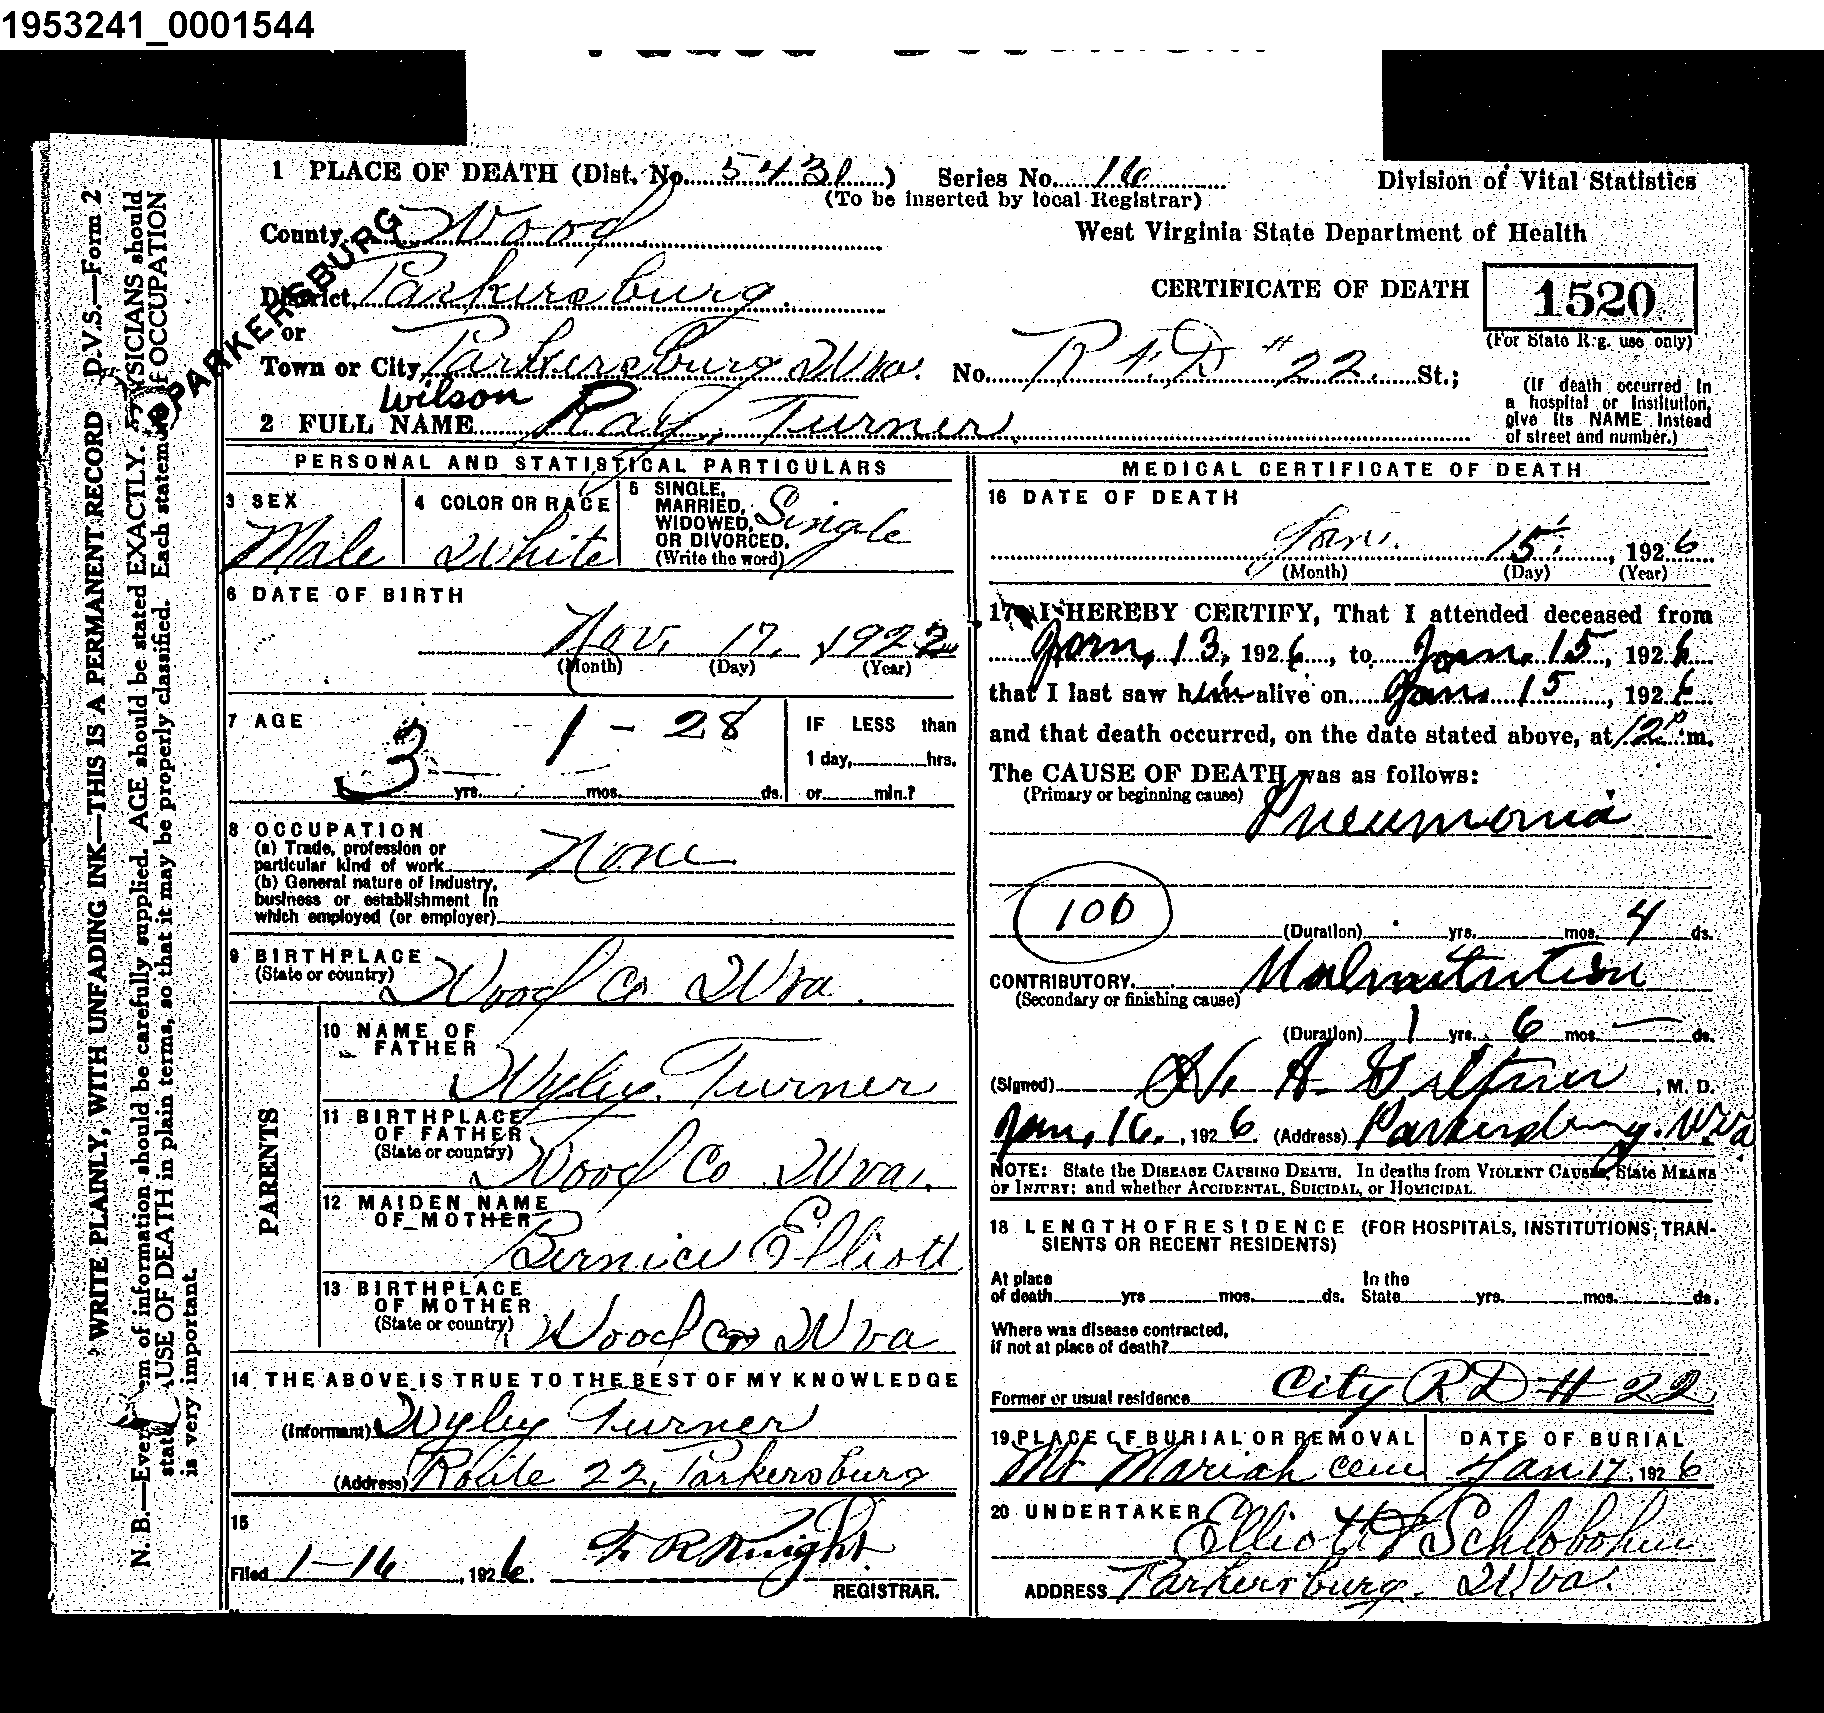 1953241_0001544
1 PLACE OF DEATH (Dist. No. 5431) Series No. 16 Division of Vital Statistics
(To be inserted by local Registrar)
County Wood West Virginia State Department of Health
PARKERSBURG
District Parkersburg. CERTIFICATE OF DEATH 1520
or
(For State Reg. use only)
Town or City Parkersburg W Va. No. R F. D # 22. St.;
(If death occurred in a hospital or institution, give its NAME instead of street and number.)
Wilson
2 FULL NAME Ray, Turner.
PERSONAL AND STATISTICAL PARTICULARS
3 SEX
Male
4 COLOR OR RACE
White
5 SINGLE, MARRIED, WIDOWED, OR DIVORCED. (Write the word)
Single
6 DATE OF BIRTH
Nov. 17, 1922
(Month) (Day) (Year)
7 AGE
3 - 1 - 28
yrs. mos. ds.
IF LESS than
1 day, hrs.
or min.?
8 OCCUPATION
(a) Trade, profession or
particular kind of work None
(b) General nature of industry,
business or establishment in
which employed (or employer)
9 BIRTHPLACE
(State or country) Wood Co W Va.
PARENTS
10 NAME OF FATHER
Wyley Turner
11 BIRTHPLACE OF FATHER
(State or country) Wood Co W Va.
12 MAIDEN NAME OF MOTHER
Bernice Elliott
13 BIRTHPLACE OF MOTHER
(State or country) Wood Co W Va
14 THE ABOVE IS TRUE TO THE BEST OF MY KNOWLEDGE
(Informant) Wyley Turner
(Address) Route 22, Parkersburg
15
Filed 1-16, 1926. F R Knight
REGISTRAR.
MEDICAL CERTIFICATE OF DEATH
16 DATE OF DEATH
Jan. 15, 1926
(Month) (Day) (Year)
17 I HEREBY CERTIFY, That I attended deceased from
Jan, 13, 1926, to Jan, 15, 1926
that I last saw him alive on Jan. 15, 1926
and that death occurred, on the date stated above, at 12 P m.
The CAUSE OF DEATH was as follows:
(Primary or beginning cause)
Pneumonia
100
(Duration) yrs. mos. 4 ds.
CONTRIBUTORY Malnutrition
(Secondary or finishing cause)
(Duration) 1 yrs. 6 mos. — ds.
(Signed) H. A. Giltner, M. D.
Jan, 16, 1926. (Address) Parkersburg. W.Va
NOTE: State the DISEASE CAUSING DEATH. In deaths from VIOLENT CAUSES, State MEANS
OF INJURY; and whether ACCIDENTAL, SUICIDAL, or HOMICIDAL.
18 LENGTH OF RESIDENCE (FOR HOSPITALS, INSTITUTIONS, TRAN-
SIENTS OR RECENT RESIDENTS)
At place of death yrs mos. ds. In the State yrs. mos. ds.
Where was disease contracted,
if not at place of death?
Former or usual residence City R D # 22
19 PLACE OF BURIAL OR REMOVAL
Mt Mariah cem
DATE OF BURIAL
Jan 17, 1926
20 UNDERTAKER Elliott & Schlobohm
ADDRESS Parkersburg. W Va.
D.V.S.—Form 2
WRITE PLAINLY, WITH UNFADING INK—THIS IS A PERMANENT RECORD
N. B.—Every item of information should be carefully supplied. AGE should be stated EXACTLY. PHYSICIANS should
state CAUSE OF DEATH in plain terms, so that it may be properly classified. Each statement of OCCUPATION
is very important.